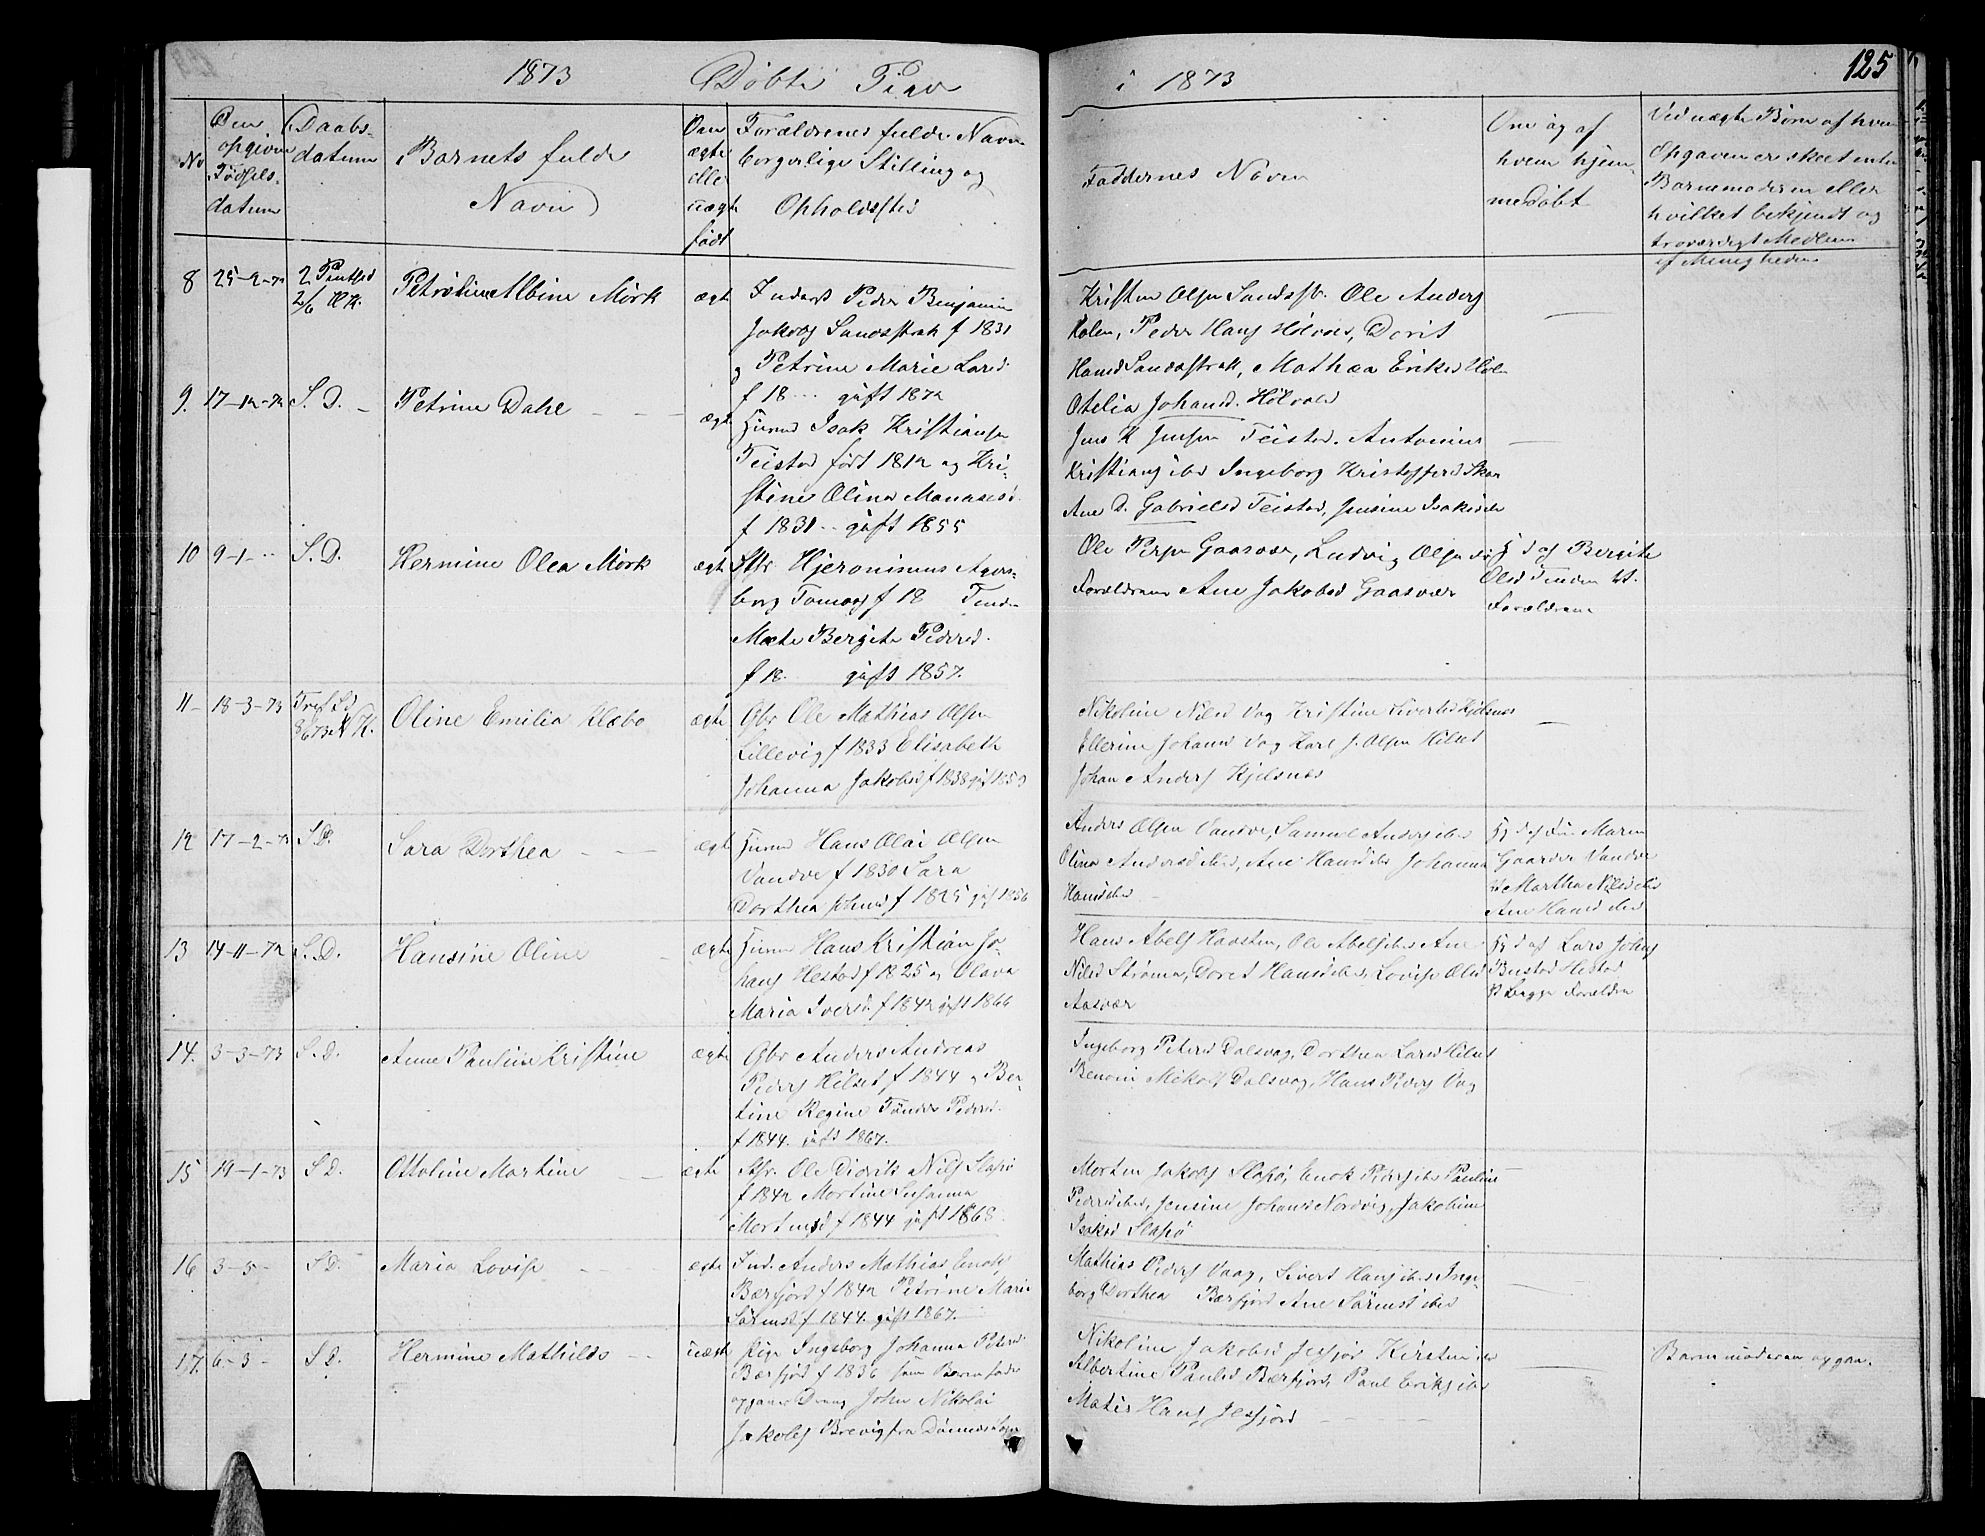 1873 Døbte Piger
i 1873
125
No
Den opgivne Fødsels-datum
Daabs-datum
Barnets fulde Navn
Om ægte eller uægte født
Forældrenes fulde Navn
borgerlige Stilling og
Opholdssted
Faddernes Navn
Om og af
hvem hjem-
medøbt
Ved uægte Børn af hvem
Opgaven er skeet enten
Barnemoderen eller
hvilket bekjendt og
troværdigt Medlem
af Menigheden
8 25-2-73 2 Pintsd 2/6 Petroline Albine Mørk ægte Inderst Peder Benjamin
Jakobs Sandsstrak f 1831
og Petrine Marie Larsd.
f 18 ... gift 1872
Kristen Olsen Sandsstr. Ole Anders
Holm, Peder Hans Hølvær, Dorit
Hansd Sandsstrak, Mathea Eriksd
Otelia Johansd. Hølvær
9. 17-12-72 S. D. Petrine Dahl ægte Huusmd Isak Kristiansen
Teistad født 1812 og Kri-
stine Olina Manassesd.
f 1831 .. gift 1855
Jens K Jensen Teistad. Antonius
Kristians ibd Ingeborg Kristoffersd
Ane D. Gabrielsd Teistad, Jensine Isaksd ibd
10 9-1-.. S. D. Hermine Olea Mørk ægte Stfr Hjeronimus
Tomas f 18 Tenden
Mete Bergite Pedersd.
f 18. gift 1857.
Ole Persen Gaasvær, Ludvig Olsen
Forældrene Ane Jakobsd Gaasvær
Hj d af Bergite
Olsd Tenden
Forældrene
11 18-3-73 Oline Emilia Klæbo ægte Gbr Ole Mathias Olsen
Lillevig f 1833 Elisabeth
Johanna Jakobsd f 1838 gift 1859
Nikoline Nilsd Vag Kristine Sivertsd Kjelsnes
Ellerine Johansd Vag Karl J. Olsen Hilset
Johan Anders Kjelsnes
12 17-2-73 S D. Sara Dorthea ægte Huusmd Hans Olai Olsen
Vandve f 1830 Sara
Dorthea Johnsd f 1825 gift 1856
Anders Olsen Vandve, Samuel Anders ibd
Olina Andersd ibd, Ane Hansd ibd Johanna
Hansd ibd
Hj d af Maren
Gaarder Vandve
Martha Nilsd ibd
Ane Hansd ibd
13 14-11-72 S. D. Hansine Oline ægte Huusmd Hans Kristian Jo-
hans Hestad f 1825 og Olava
Maria Iversd. f 1842 gift 1866
Hans Abels Havsten, Ole Abels ibd Ane
Nilsd Strømen, Doret Hansd ibd, Lovise Olsd
Aasvær
Hj d af Lars Johns
Bustad Hestad
begge Forældre
14. 3-3-73 S. D. Anne Pauline Kristine ægte Gbr Anders Andreas
Peders Hilset f 1844 og Ber-
tine Regine Tønder Pedersd.
f 1844. gift 1867.
Ingeborg Petersd Dalsvag, Dorthea Larsd Hilset
Benoni Mikals Dalsvag, Hans Peders Vag
15 19-1-73 S D. Ottoline Martine ægte Stfr. Ole Didrik Nils Slapø
f 1842 Martine Susanna
Mortensd f 1844 gift 1868.
Morten Jakobs Slapø, Enok Peders ibd Pauline
Pedersd ibd, Jensine Johansd Nordvig, Jakobine
Isaksd Slapø
16 3-5- S D. Maria Lovise ægte Ind. Anders Mathias Enoks
Bærfjord f 1842 Petrine Marie
Sørensd f 1844. gift 1867.
Mathias Peders Vaag, Sivert Hans ibd Inge-
borg Dorthea Bærfjord Ane Sørensd ibd
17. 6-3- S D. Hermine Mathilde uægte Pige Ingeborg Johanna Petersd.
Bærfjord f 1836 som Barnefader
opgaves Dreng John Nikolai
Jakobs Brevig fra Dønnes Sogn
Nikoline Jakobsd Jesfjord Kirsten ibd
Albertine Paulsd Bærfjord, Paul Eriks ibd
Matis Hans Jesfjord
Barnemoderen opgav.